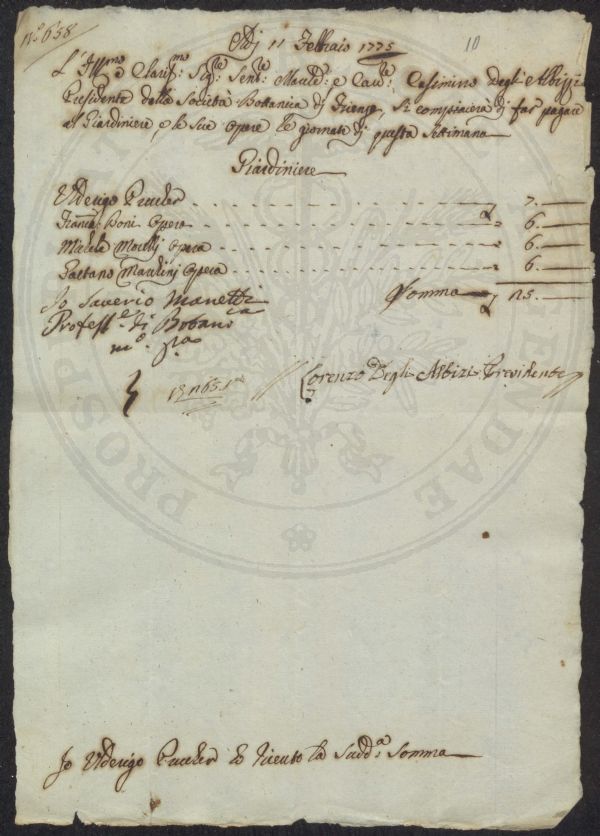 N.° 658
10
Adj 11 Febbraio 1775
L'Ill.mo e Clariss.mo Sig.re Sen.re March.e e Cav.re Casimiro Degli Albizzi
Presidente della Società Botanica di Firenze, Si compiacerà di far pagare
al Giardiniere, e le Sue Opere le giornate di questa Settimana
Giardiniere
Ulderigo Prucker 7.
Franc.o Boni Opera 6.
Michele Morelli Opera 6.
Gaetano Maulini Opera 6.
Somma 25.
Io Saverio Manetti
Profess.e di Botanica
m.o p.a
Lorenzo Degli Albizi Presidente
Io Ulderigo Prucker ho ricevuto la Sudd.a Somma
PROSP